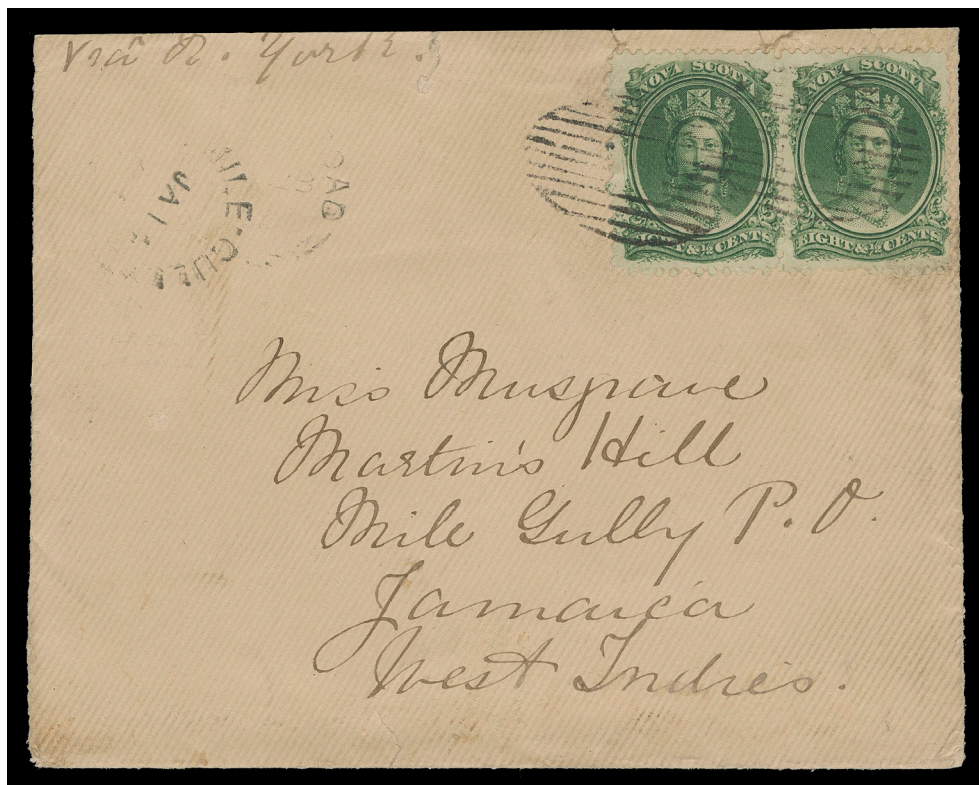 Via N. York.
NOVA SCOTIA
EIGHT & ½ CENTS
NOVA SCOTIA
EIGHT & ½ CENTS
PAID
MILE-GULLY
JA
Miss Musgrave
Martin's Hill
Mile Gully P. O.
Jamaica
West Indies.